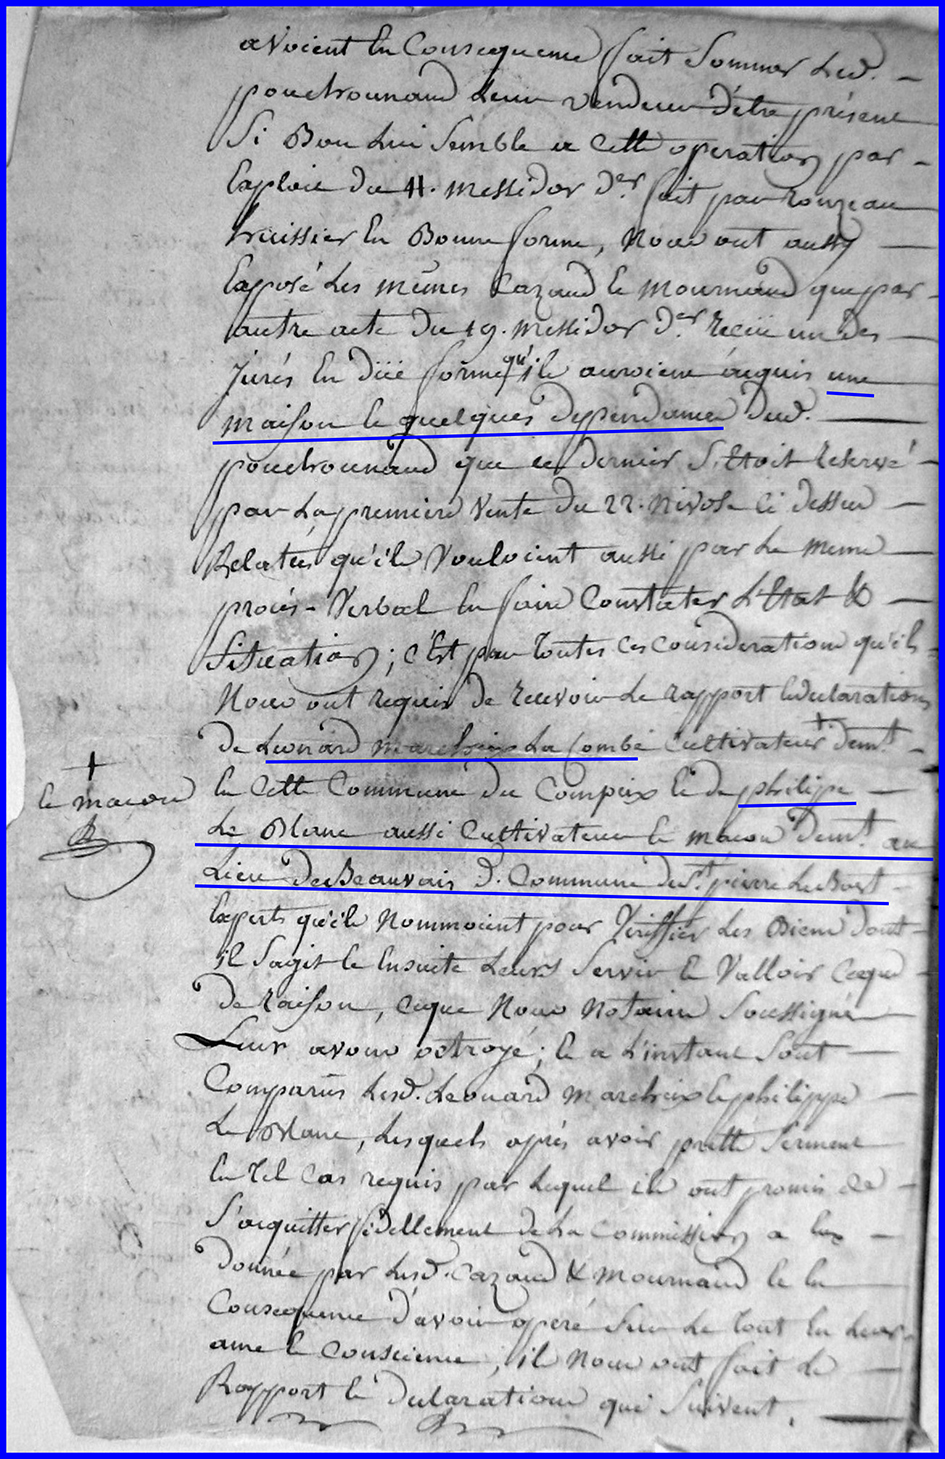 avoient En Consequence fait Sommer Led.
pouchounaud Leur vendeur d'être présent
Si Bon Lui Semble a Cette operation par
Exploit du 11. Messidor der fait par rouzeau
huissier En Bonne forme, Nous ont aussy
Exposé Les mêmes Cazaud & Mournaud que par
autre acte du 19. Messidor der Recüe un des
Jurés En düe forme qu'ils auroient acquis une
maison & quelques dependances dud.
pouchounaud que ce dernier S'Etoit Reservé
par La premiere Vente du 22. Nivose Ci dessus
Relatée qu'ils Vouloient aussi par Le meme
procés-Verbal En faire Constater L'Etat &
Situation ; c'Est par Toutes Ces Considerations qu'ils
Nous ont requis de recevoir Le rapport & declarations
de Leonard marcheix La Combe Cultivateur + demt.
En Cette Commune du Compeix & de philipe
Le Blanc aussi Cultivateur & macon demt. au
Lieu de Beauvais d. Commune de St. pierre Le Bost
+
& macon
Experts qu'ils Nommoient pour Veriffier Les Biens dont
il S'agit & Ensuite Leurs Servir & Valloir Ceque
de raison, Ceque Nous Notaire Soussigné
Leur avons octroyé ; & a L'instant Sont
Comparus Lesd. Leonard Marcheix & philippe
Le Blanc, Lesquels aprés avoir pretté Serment
En Tel Cas requis par Lequel ils ont promis de
S'acquitter fidellement de La Commission a Eux
donnée par Lesd. Cazaud & Mournaud & En
Consequence d'avoir operé Sur Le tout En Leur
ame & Conscience, ils Nous ont fait Le
Rapport & declarations qui Suivent.